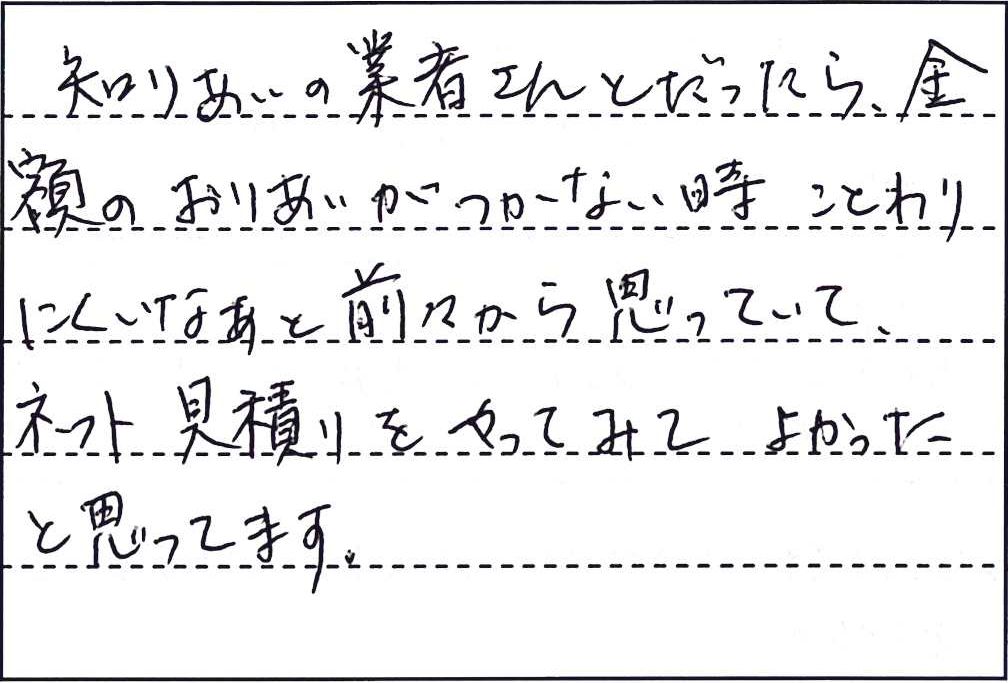 知りあいの業者さんとだったら、金
額のおりあいがつかない時 ことわり
にくいなあと前々から思っていて、
ネット見積りをやってみて よかった
と思ってます。